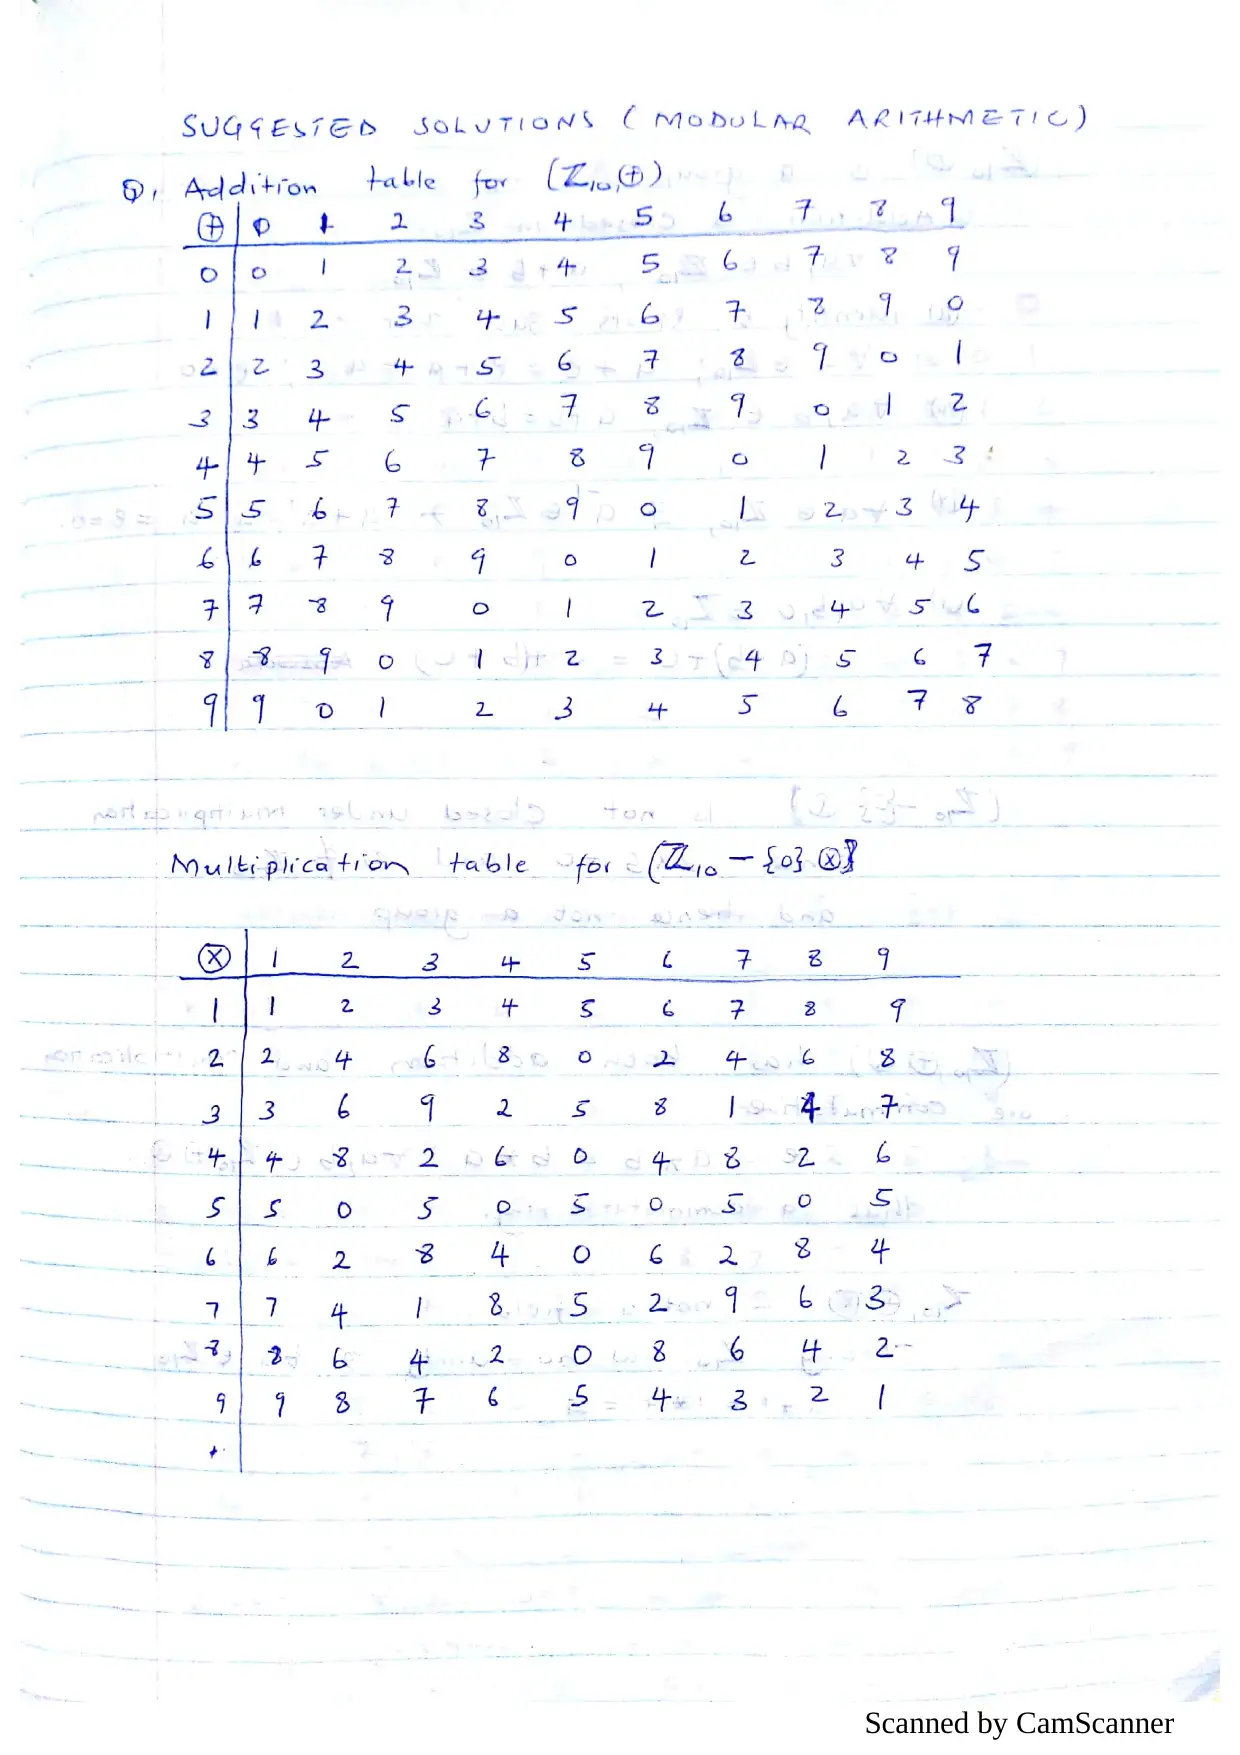 SUGGESTED SOLUTIONS (MODULAR ARITHMETIC)
Q1 Addition table for (ℤ₁₀,⊕)
⊕ 0 1 2 3 4 5 6 7 8 9
0 0 1 2 3 4 5 6 7 8 9
1 1 2 3 4 5 6 7 8 9 0
2 2 3 4 5 6 7 8 9 0 1
3 3 4 5 6 7 8 9 0 1 2
4 4 5 6 7 8 9 0 1 2 3
5 5 6 7 8 9 0 1 2 3 4
6 6 7 8 9 0 1 2 3 4 5
7 7 8 9 0 1 2 3 4 5 6
8 8 9 0 1 2 3 4 5 6 7
9 9 0 1 2 3 4 5 6 7 8
Multiplication table for (ℤ₁₀ - {0} ⊗}
⊗ 1 2 3 4 5 6 7 8 9
1 1 2 3 4 5 6 7 8 9
2 2 4 6 8 0 2 4 6 8
3 3 6 9 2 5 8 1 4 7
4 4 8 2 6 0 4 8 2 6
5 5 0 5 0 5 0 5 0 5
6 6 2 8 4 0 6 2 8 4
7 7 4 1 8 5 2 9 6 3
8 8 6 4 2 0 8 6 4 2
9 9 8 7 6 5 4 3 2 1
Scanned by CamScanner